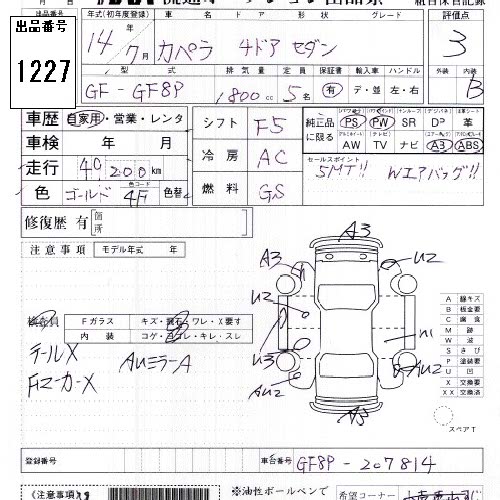 出品番号
1227
年式(初年度登録) 車名 ドア 形状 グレード 評価点
14年 7月 カペラ 4ドア セダン 3
型式 排気量 定員 保証書 輸入車 ハンドル 内装
GF - GF8P 1800cc 5名 有 デ・並 左・右 B
車歴 自家用・営業・レンタ
シフト F5
純正品に限る PS PW SR DP 革
AW TV ナビ A3 ABS
車検 年 月
冷房 AC
セールスポイント
5MT!! Wエアバッグ!!
走行 40,200km
色 ゴールド 色コード 4F 色替
燃料 GS
修復歴 有 箇所
注意事項 モデル年式 年
A3
A3 U2
U2
U1
U3
AU2 AU2
A3
検査員 Fガラス キズ・飛石・ワレ・X要す
内装 コゲ・コワレ・キレ・スレ
テールX
FマーカーX
AUミラーA
A 線キズ
B 板金要
C 腐食
M 跡
W 波
S さび
P 塗装要
U 凹
X 交換要
XX 交換済
スペアT
登録番号 車台番号 GF8P - 207814
《注意事項》
※油性ボールペンで
希望コーナー